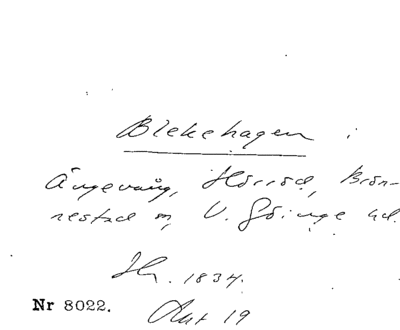 Blekehagen i
Ängevång, Hörröd, Brön-
nestad sn, V. Göinge hd.
Hr. 1834.
Nr 8022.
Akt 19